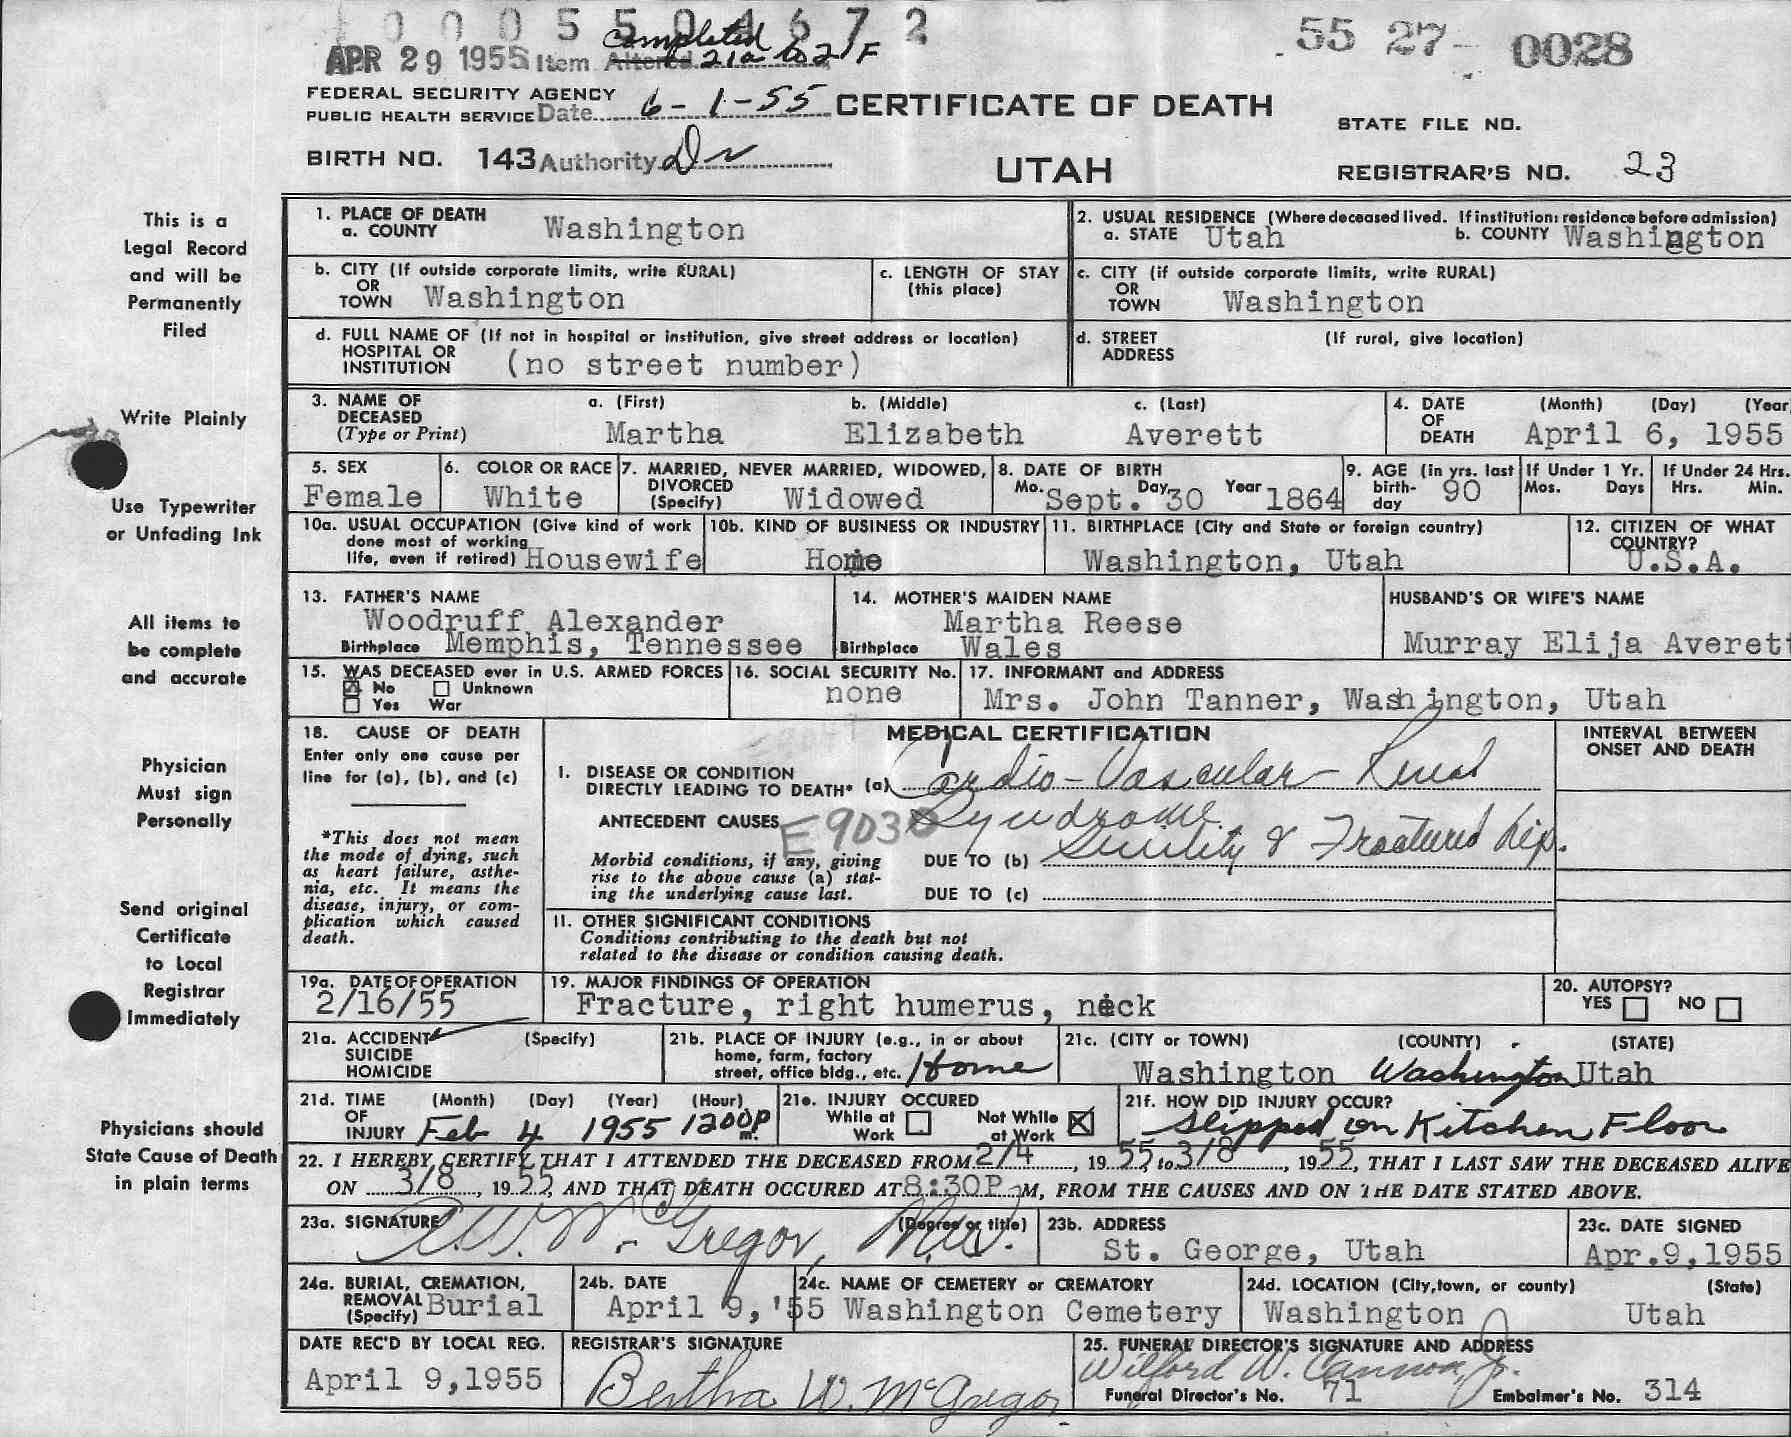 0 0 0 5 5 0 4 6 7 2
55 27- 0028
APR 29 1955 Item Altered completed 21a to 21F
FEDERAL SECURITY AGENCY
PUBLIC HEALTH SERVICE Date 6-1-55 CERTIFICATE OF DEATH
STATE FILE NO.
BIRTH NO. 143 Authority Dr UTAH REGISTRAR'S NO. 23
This is a
Legal Record
and will be
Permanently
Filed
Write Plainly
Use Typewriter
or Unfading Ink
All items to
be complete
and accurate
Physician
Must sign
Personally
Send original
Certificate
to Local
Registrar
Immediately
Physicians should
State Cause of Death
in plain terms
1. PLACE OF DEATH
a. COUNTY Washington
2. USUAL RESIDENCE (Where deceased lived. If institution: residence before admission)
a. STATE Utah b. COUNTY Washington
b. CITY (If outside corporate limits, write RURAL)
OR
TOWN Washington
c. LENGTH OF STAY
(this place)
c. CITY (if outside corporate limits, write RURAL)
OR
TOWN Washington
d. FULL NAME OF (If not in hospital or institution, give street address or location)
HOSPITAL OR
INSTITUTION (no street number)
d. STREET (If rural, give location)
ADDRESS
3. NAME OF DECEASED (Type or Print)
a. (First) b. (Middle) c. (Last)
Martha Elizabeth Averett
4. DATE OF DEATH (Month) (Day) (Year
April 6, 1955
5. SEX
Female
6. COLOR OR RACE
White
7. MARRIED, NEVER MARRIED, WIDOWED,
DIVORCED
(Specify) Widowed
8. DATE OF BIRTH
Mo. Sept. Day 30 Year 1864
9. AGE (in yrs. last
birth-
day 90
If Under 1 Yr.
Mos. Days
If Under 24 Hrs.
Hrs. Min.
10a. USUAL OCCUPATION (Give kind of work
done most of working
life, even if retired) Housewife
10b. KIND OF BUSINESS OR INDUSTRY
Home
11. BIRTHPLACE (City and State or foreign country)
Washington, Utah
12. CITIZEN OF WHAT
COUNTRY?
U.S.A.
13. FATHER'S NAME
Woodruff Alexander
Birthplace Memphis, Tennessee
14. MOTHER'S MAIDEN NAME
Martha Reese
Birthplace Wales
HUSBAND'S OR WIFE'S NAME
Murray Elija Averett
15. WAS DECEASED ever in U.S. ARMED FORCES
No Unknown
Yes War
16. SOCIAL SECURITY No.
none
17. INFORMANT and ADDRESS
Mrs. John Tanner, Washington, Utah
18. CAUSE OF DEATH
Enter only one cause per
line for (a), (b), and (c)
*This does not mean
the mode of dying, such
as heart failure, asthe-
nia, etc. It means the
disease, injury, or com-
plication which caused
death.
MEDICAL CERTIFICATION
INTERVAL BETWEEN
ONSET AND DEATH
I. DISEASE OR CONDITION
DIRECTLY LEADING TO DEATH* (a) Cardio-Vascular-Renal
Syndrome
ANTECEDENT CAUSES E9030
Morbid conditions, if any, giving
rise to the above cause (a) stat-
ing the underlying cause last.
DUE TO (b) Senility & Fractured hip.
DUE TO (c)
II. OTHER SIGNIFICANT CONDITIONS
Conditions contributing to the death but not
related to the disease or condition causing death.
19a. DATE OF OPERATION
2/16/55
19. MAJOR FINDINGS OF OPERATION
Fracture, right humerus, neck
20. AUTOPSY?
YES NO
21a. ACCIDENT (Specify)
SUICIDE
HOMICIDE
21b. PLACE OF INJURY (e.g., in or about
home, farm, factory
street, office bldg., etc. Home
21c. (CITY or TOWN) (COUNTY) (STATE)
Washington Washington Utah
21d. TIME (Month) (Day) (Year) (Hour)
OF
INJURY Feb 4 1955 1200P m.
21e. INJURY OCCURED
While at Work
Not While at Work
21f. HOW DID INJURY OCCUR?
Slipped on Kitchen Floor
22. I HEREBY CERTIFY THAT I ATTENDED THE DECEASED FROM 2/4, 1955, to 3/8, 1955, THAT I LAST SAW THE DECEASED ALIVE
ON 3/8, 1955, AND THAT DEATH OCCURED AT 8:30P M, FROM THE CAUSES AND ON THE DATE STATED ABOVE.
23a. SIGNATURE (Degree or title)
A.W. McGregor, M.D.
23b. ADDRESS
St. George, Utah
23c. DATE SIGNED
Apr.9,1955
24a. BURIAL, CREMATION,
REMOVAL
(Specify) Burial
24b. DATE
April 9, '55
24c. NAME OF CEMETERY or CREMATORY
Washington Cemetery
24d. LOCATION (City, town, or county) (State)
Washington Utah
DATE REC'D BY LOCAL REG.
April 9,1955
REGISTRAR'S SIGNATURE
Bertha W. McGregor
25. FUNERAL DIRECTOR'S SIGNATURE AND ADDRESS
Wilford W. Cannon, Jr.
Funeral Director's No. 71 Embalmer's No. 314